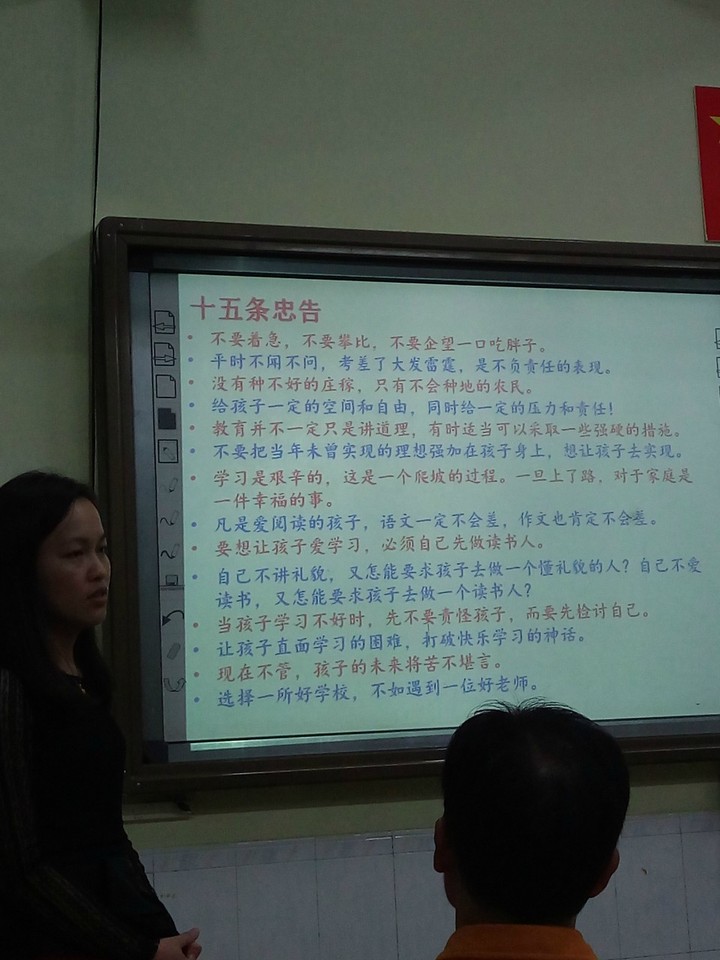 十五条忠告
• 不要着急，不要攀比，不要企望一口吃胖子。
• 平时不闻不问，考差了大发雷霆，是不负责任的表现。
• 没有种不好的庄稼，只有不会种地的农民。
• 给孩子一定的空间和自由，同时给一定的压力和责任！
• 教育并不一定只是讲道理，有时适当可以采取一些强硬的措施。
• 不要把当年未曾实现的理想强加在孩子身上，想让孩子去实现。
• 学习是艰辛的，这是一个爬坡的过程。一旦上了路，对于家庭是
一件幸福的事。
• 凡是爱阅读的孩子，语文一定不会差，作文也肯定不会差。
• 要想让孩子爱学习，必须自己先做读书人。
• 自己不讲礼貌，又怎能要求孩子去做一个懂礼貌的人？自己不爱
读书，又怎能要求孩子去做一个读书人？
• 当孩子学习不好时，先不要责怪孩子，而要先检讨自己。
• 让孩子直面学习的困难，打破快乐学习的神话。
• 现在不管，孩子的未来将苦不堪言。
• 选择一所好学校，不如遇到一位好老师。